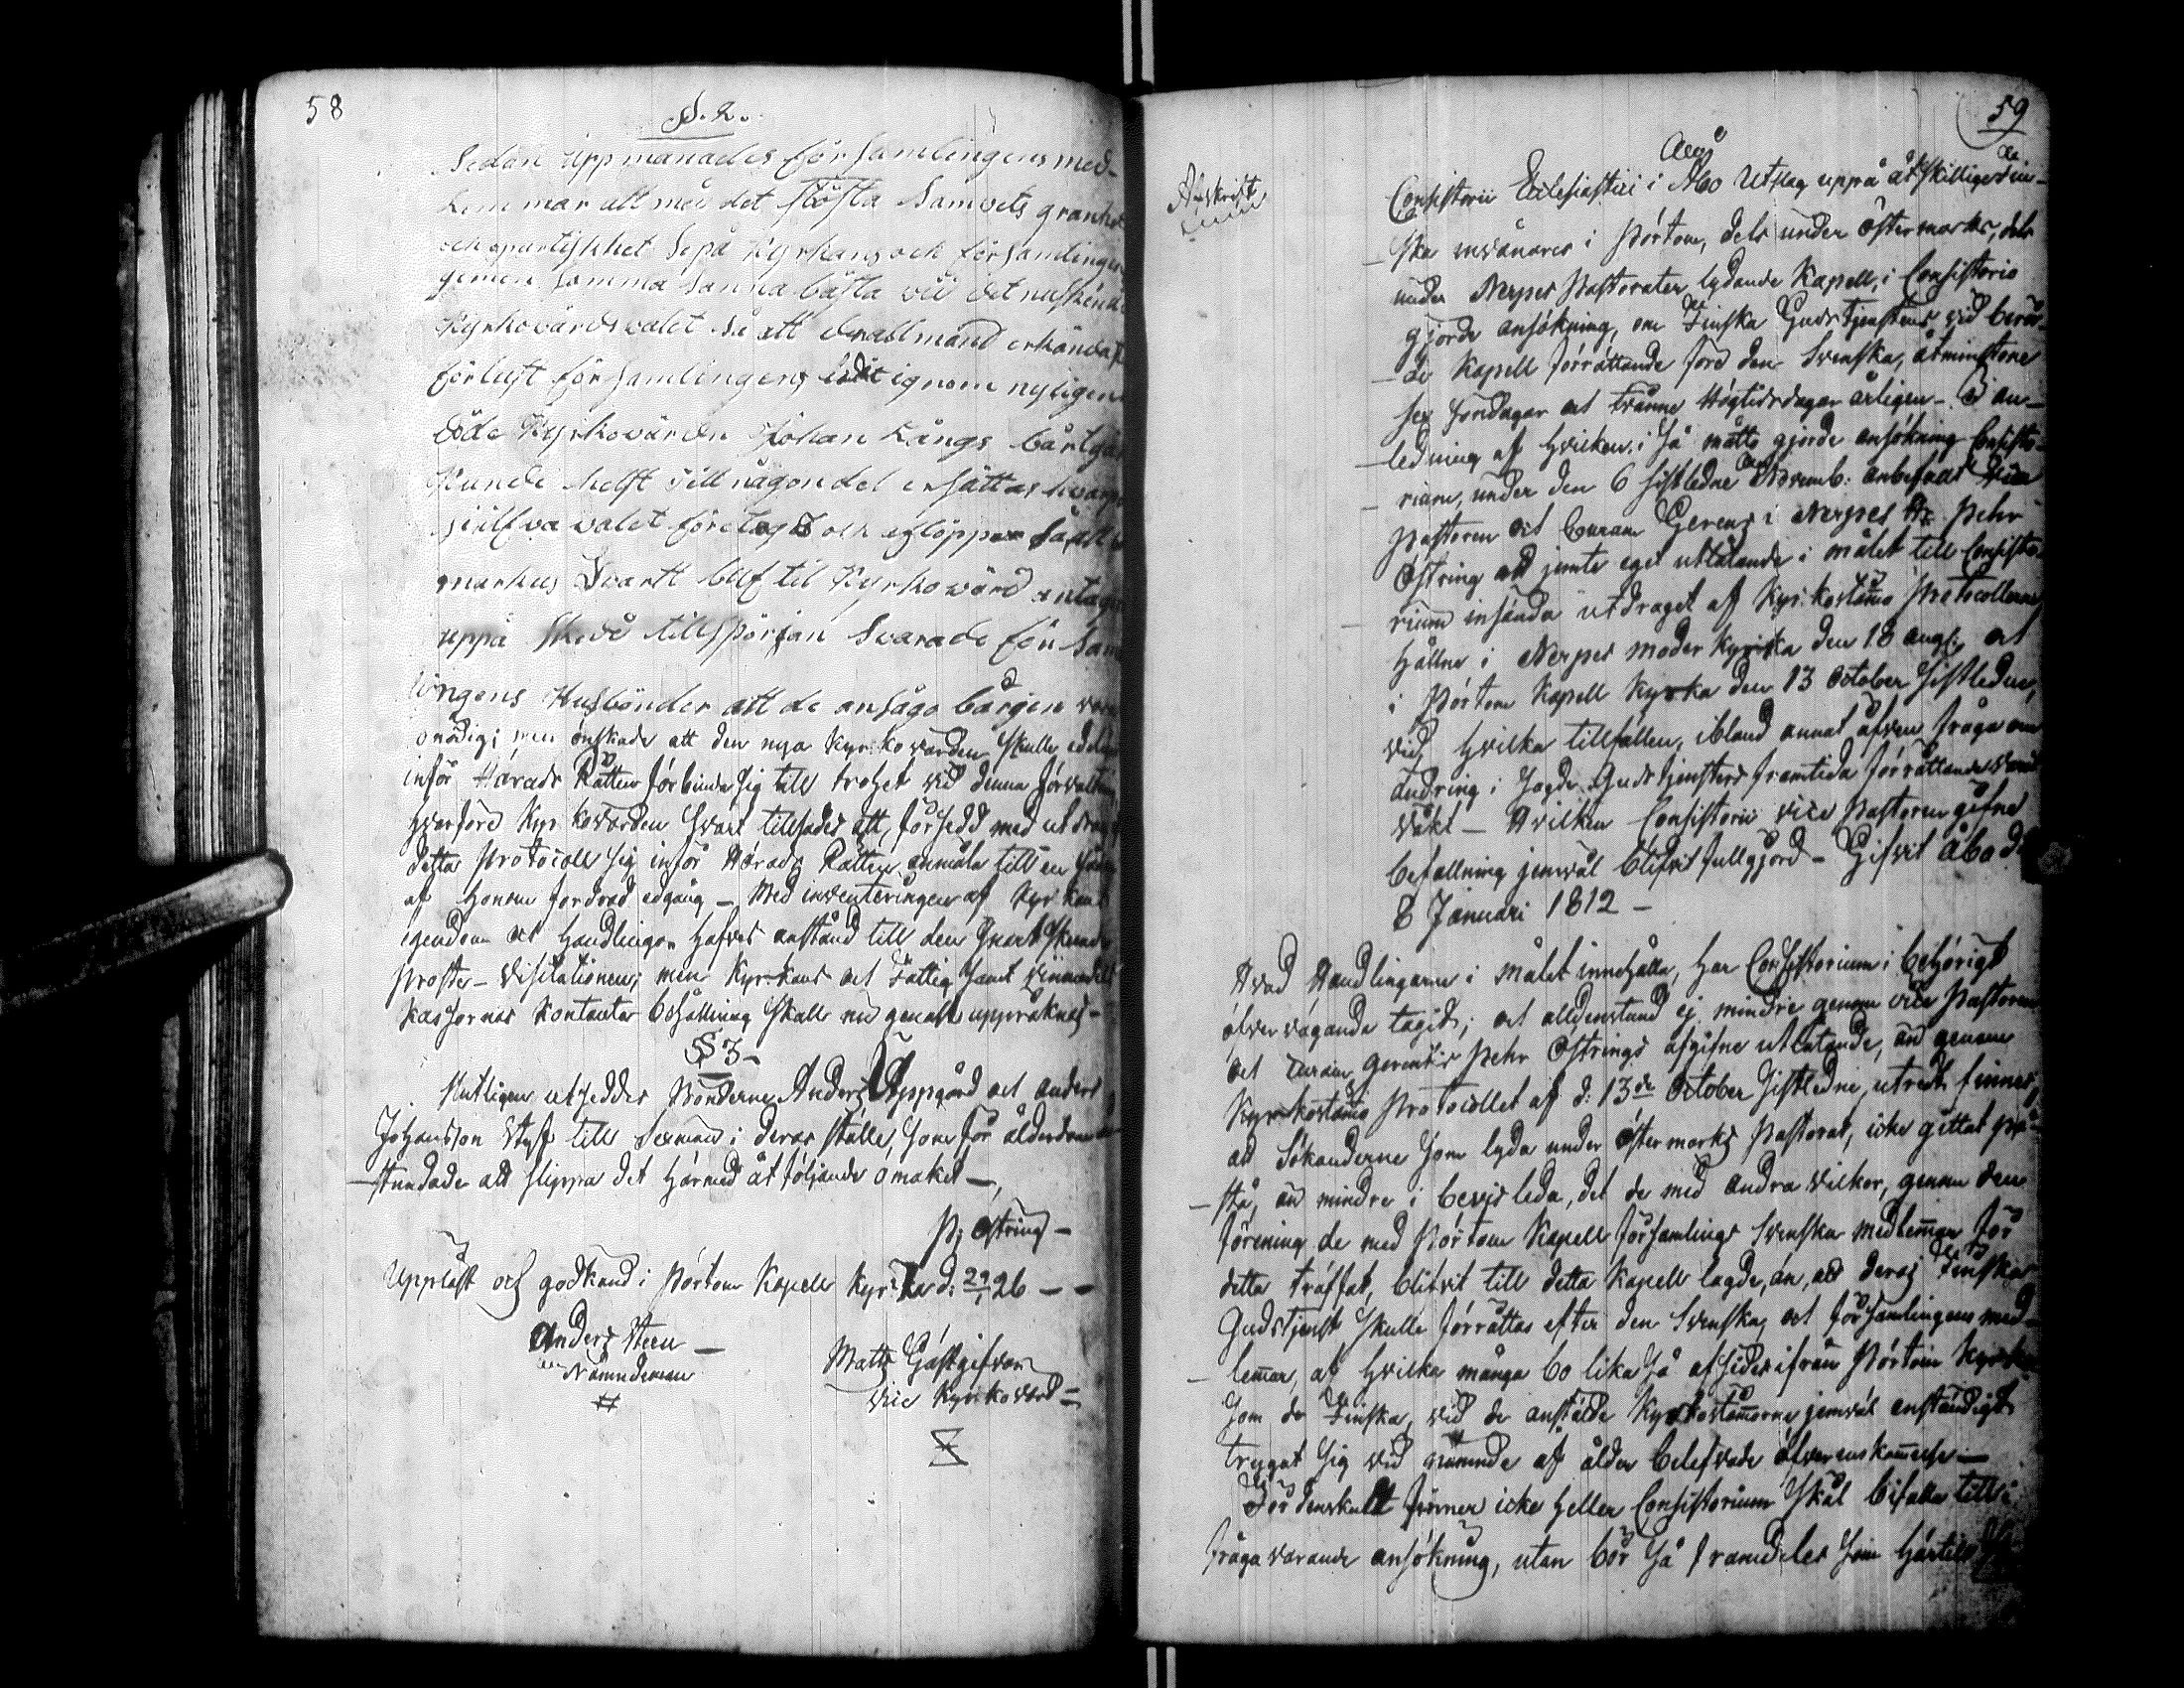 58
§. 2.
Sedan uppmanades församlingens med-
lemmar att med det största Samvets granhet
och opartiskhet Se på Kyrkans och församlingens
gemensamma sanna bästa vid det nu skeende
Kyrkovärds valet så att den allmänd erkända
förlust församlingens lidit ignom nyligen
döde Kyrkovärden Johan Långs bårtgå
Kunde helst till någon del ersättas hvarpå
sielfva valet företogs och aflopp så, att
markus Svartt blef til Kyrkovärd antagen
uppå Skedd tillspörjan Svarade för Sam
lingens Husbönder att de ansågo bårgen vara
onödig; men önskade att den nya Kyrkovärden skulle edel
inför Härads Rätten förbinda sig till trohet vid denna förvaltning
hvarföre Kyrkovärden Svart tillsades att, försedd med utdrag
detta Protocoll sig inför Härads Rätten anmäla till en sådan
af honom fordrad edgång – Med inventeringen af Kyrkans
egendom och Handlingar hafves anstånd till den snart skeende
Prosts-Visitationen; men Kyrkans och Fattig samt
Kassornas Kontanta behållning skall nu genast uppräknas –
§ 3 –
Slutligen utseddes Bönderne Anders Uppgård och Anders
Johansson Styf till Sexmän i deras ställe, som för ålderdom
– stundade att slippa det härmed åtföljande omaket –
P; Östring –
Uppläst och godkänd i Pörtom Kapells Kyrka d: 29/1 26 – –
Anders Steen –
Nämndeman
#
Matts Gästgifvar
Vice Kyrkovärd –
59
Afskrift
Consistorii Ecclesiastici i Åbo Utslag uppå åtskillige Fin-
– ska invånares i Pörtom, dels under Östermarks, dels
under Nerpes Pastorater lydande Kapell, i Consistorio
gjorde ansökning, om Finska Gudstjenstens vid berör-
– de Kapell förrättande före den Svenska, åtminstone
sex söndagar och tvänne Högtidsdagar årligen – I an-
– ledning af hvilken i så måtto gjorde ansökning Consisto-
– rium, under den 6 sistledne Novemb: anbefalt Vice
Pastoren och Curam Gerens i Nerpes Hr Pehr
Östring att jemte eget utlåtande i målet till Consisto-
– rium insända utdraget af Kyrkostämo Protocollerne
hållne i Nerpes moder Kyrka den 18 Aug:, och
i Pörtom Kapell Kyrka den 13 October sistledne,
vid hvilka tillfällen, ibland annat äfven fråga om
ändring i sagde Gudstjensters framtida förrättande varit
väkt – Hvilken Consistorii vice Pastoren gifne
befallning jemväl blifvit fullgjord – Gifvit Åbo d:
8 Januari 1812 –
Hvad Handlingarne i målet innehålla, har Consistorium i behörigt
öfvervägande tagit; och alldenstund ej mindre genom vice Pastoren
och Curam gerentis Pehr Östrings afgifne utlåtande, än genom
Kyrkostämo Protocollet af d: 13de October sistledne, utredt finnes,
att Sökanderne som lyda under Östermarks Pastorat, icke gittat på-
– stå, än mindre i bevis leda, det de med andra vilkor, genom den
förening de med Pörtom Kapell församlings Svenska medlemmar för
detta träffat, blifvit till detta Kapell lagde, än, att deras Finska
Gudstjenst skulle förrättas efter den Svenska, och församlingens med-
– lemmar, af hvilka många bo lika så afsides ifrån Pörtom Kyrka
som de Finska, vid de anstälde Kyrkostämmorne jemväl enständigt
trygat sig vid nämnde af ålder belefvade öfverenskommelse –
Fördenskull finner icke heller Consistorium skäl bifalla till i
fråga varande ansökning, utan bör så framdeles som härtills